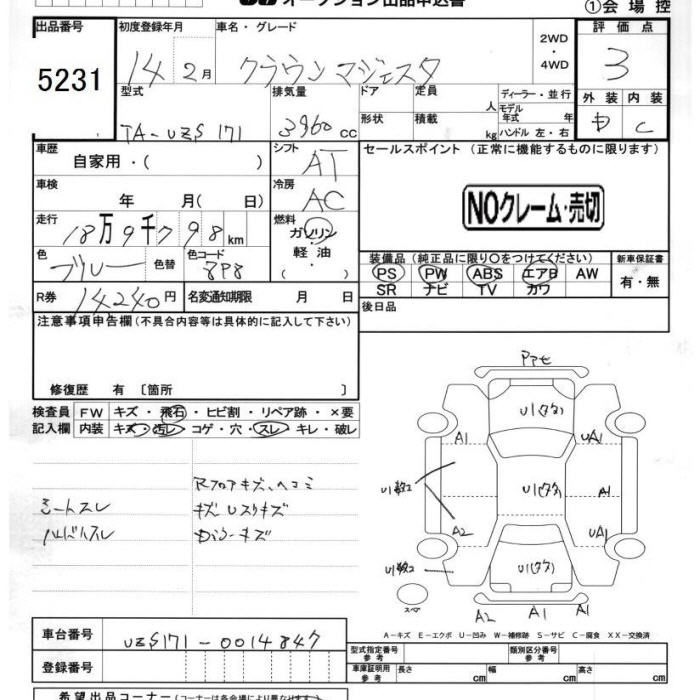 オークション出品申込書
①会場控
出品番号
5231
初度登録年月
14年2月
車名・グレード
クラウンマジェスタ
2WD
・
4WD
評価点
3
型式
TA-UZS171
排気量
3960cc
ドア
定員
人
ディーラー・並行
モデル年式 年
形状
積載
kg
ハンドル 左・右
外装
内装
C
車歴
自家用・( )
シフト
AT
セールスポイント (正常に機能するものに限ります)
NOクレーム・売切
車検
年 月( 日)
冷房
AC
走行
18万9千798km
燃料
ガソリン
軽油
・( )
色
ブルー
色替
色コード
8P8
装備品(純正品に限り○をつけてください)
新車保証書
PS PW ABS エアB AW
有・無
SR ナビ TV カワ
R券
14240円
名変通知期限 月 日
後日品
注意事項申告欄(不具合内容等は具体的に記入して下さい)
修復歴 有 〔箇所 〕
検査員
FW
キズ・飛石・ヒビ割・リペア跡・×要
記入欄
内装
キズ・汚レ・コゲ・穴・スレ・キレ・破レ
シートスレ
ハンドルスレ
Rフロアキズ、ヘコミ
キズ
キズ
A1
UA1
U1
U1
A1
A2
UA1
U1
U1
U1
スペア
A2
A1
A1
A-キズ E-エクボ U-凹み W-補修跡 S-サビ C-腐食 XX-交換済
車台番号
UZS171-0014847
登録番号
型式指定番号
参考
類別区分番号
参考
車庫証明用
参考
長さ
cm
幅
cm
高さ
cm
希望出品コーナー(コーナーは各会場により異なります)